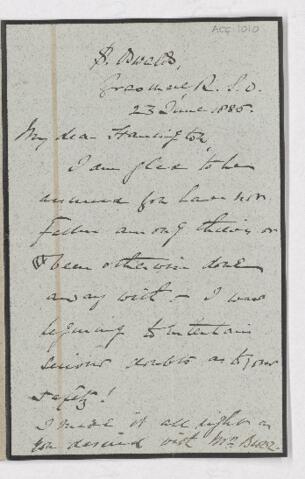 ACC 1010
S. Oswalds,
Grasmere R.S.O.
23 June 1885.
My dear Harrington
I am glad to be
assured you have not
fallen among thieves or
been otherwise done
away with – I was
beginning to entertain
serious doubts as to your
safety!
I made it all right as
you desired with Mrs